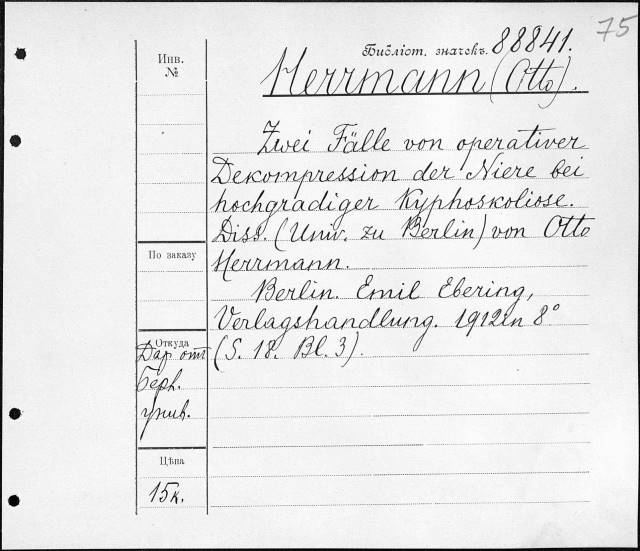 75
Библіот. значекъ. 88841.
Инв.
№
Herrmann (Otto).
Zwei Fälle von operativer
Dekompression der Niere bei
hochgradiger Kyphoskoliose.
Diss. (Univ. zu Berlin) von Otto
Herrmann.
По заказу
Berlin. Emil Ebering,
Verlagshandlung. 1912 in 8°
(S. 18. Bl. 3).
Откуда
Дар отъ
Берл.
унив.
Цѣна
15к.